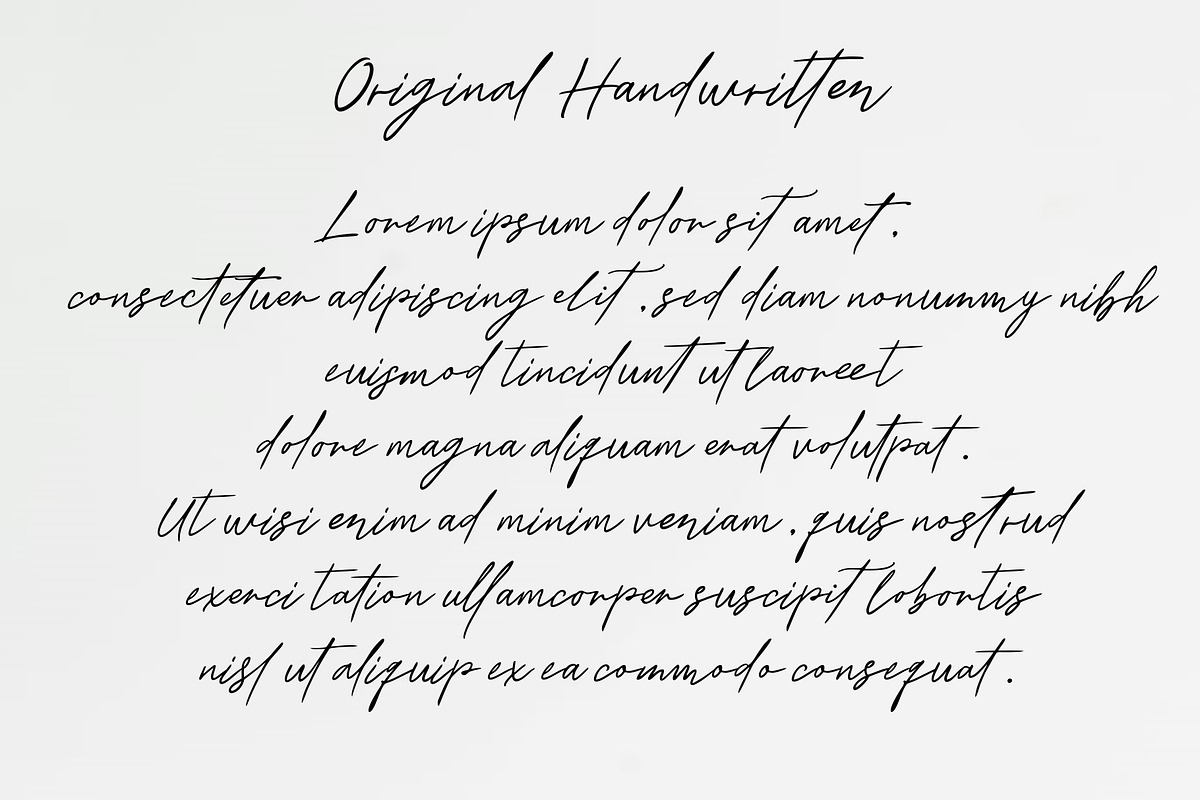 Original Handwritten
Lorem ipsum dolor sit amet .
consectetuer adipiscing elit . sed diam nonummy nibh
euismod tincidunt ut laoreet
dolore magna aliquam erat volutpat .
Ut wisi enim ad minim veniam . quis nostrud
exerci tation ullamcorper suscipit lobortis
nisl ut aliquip ex ea commodo consequat .